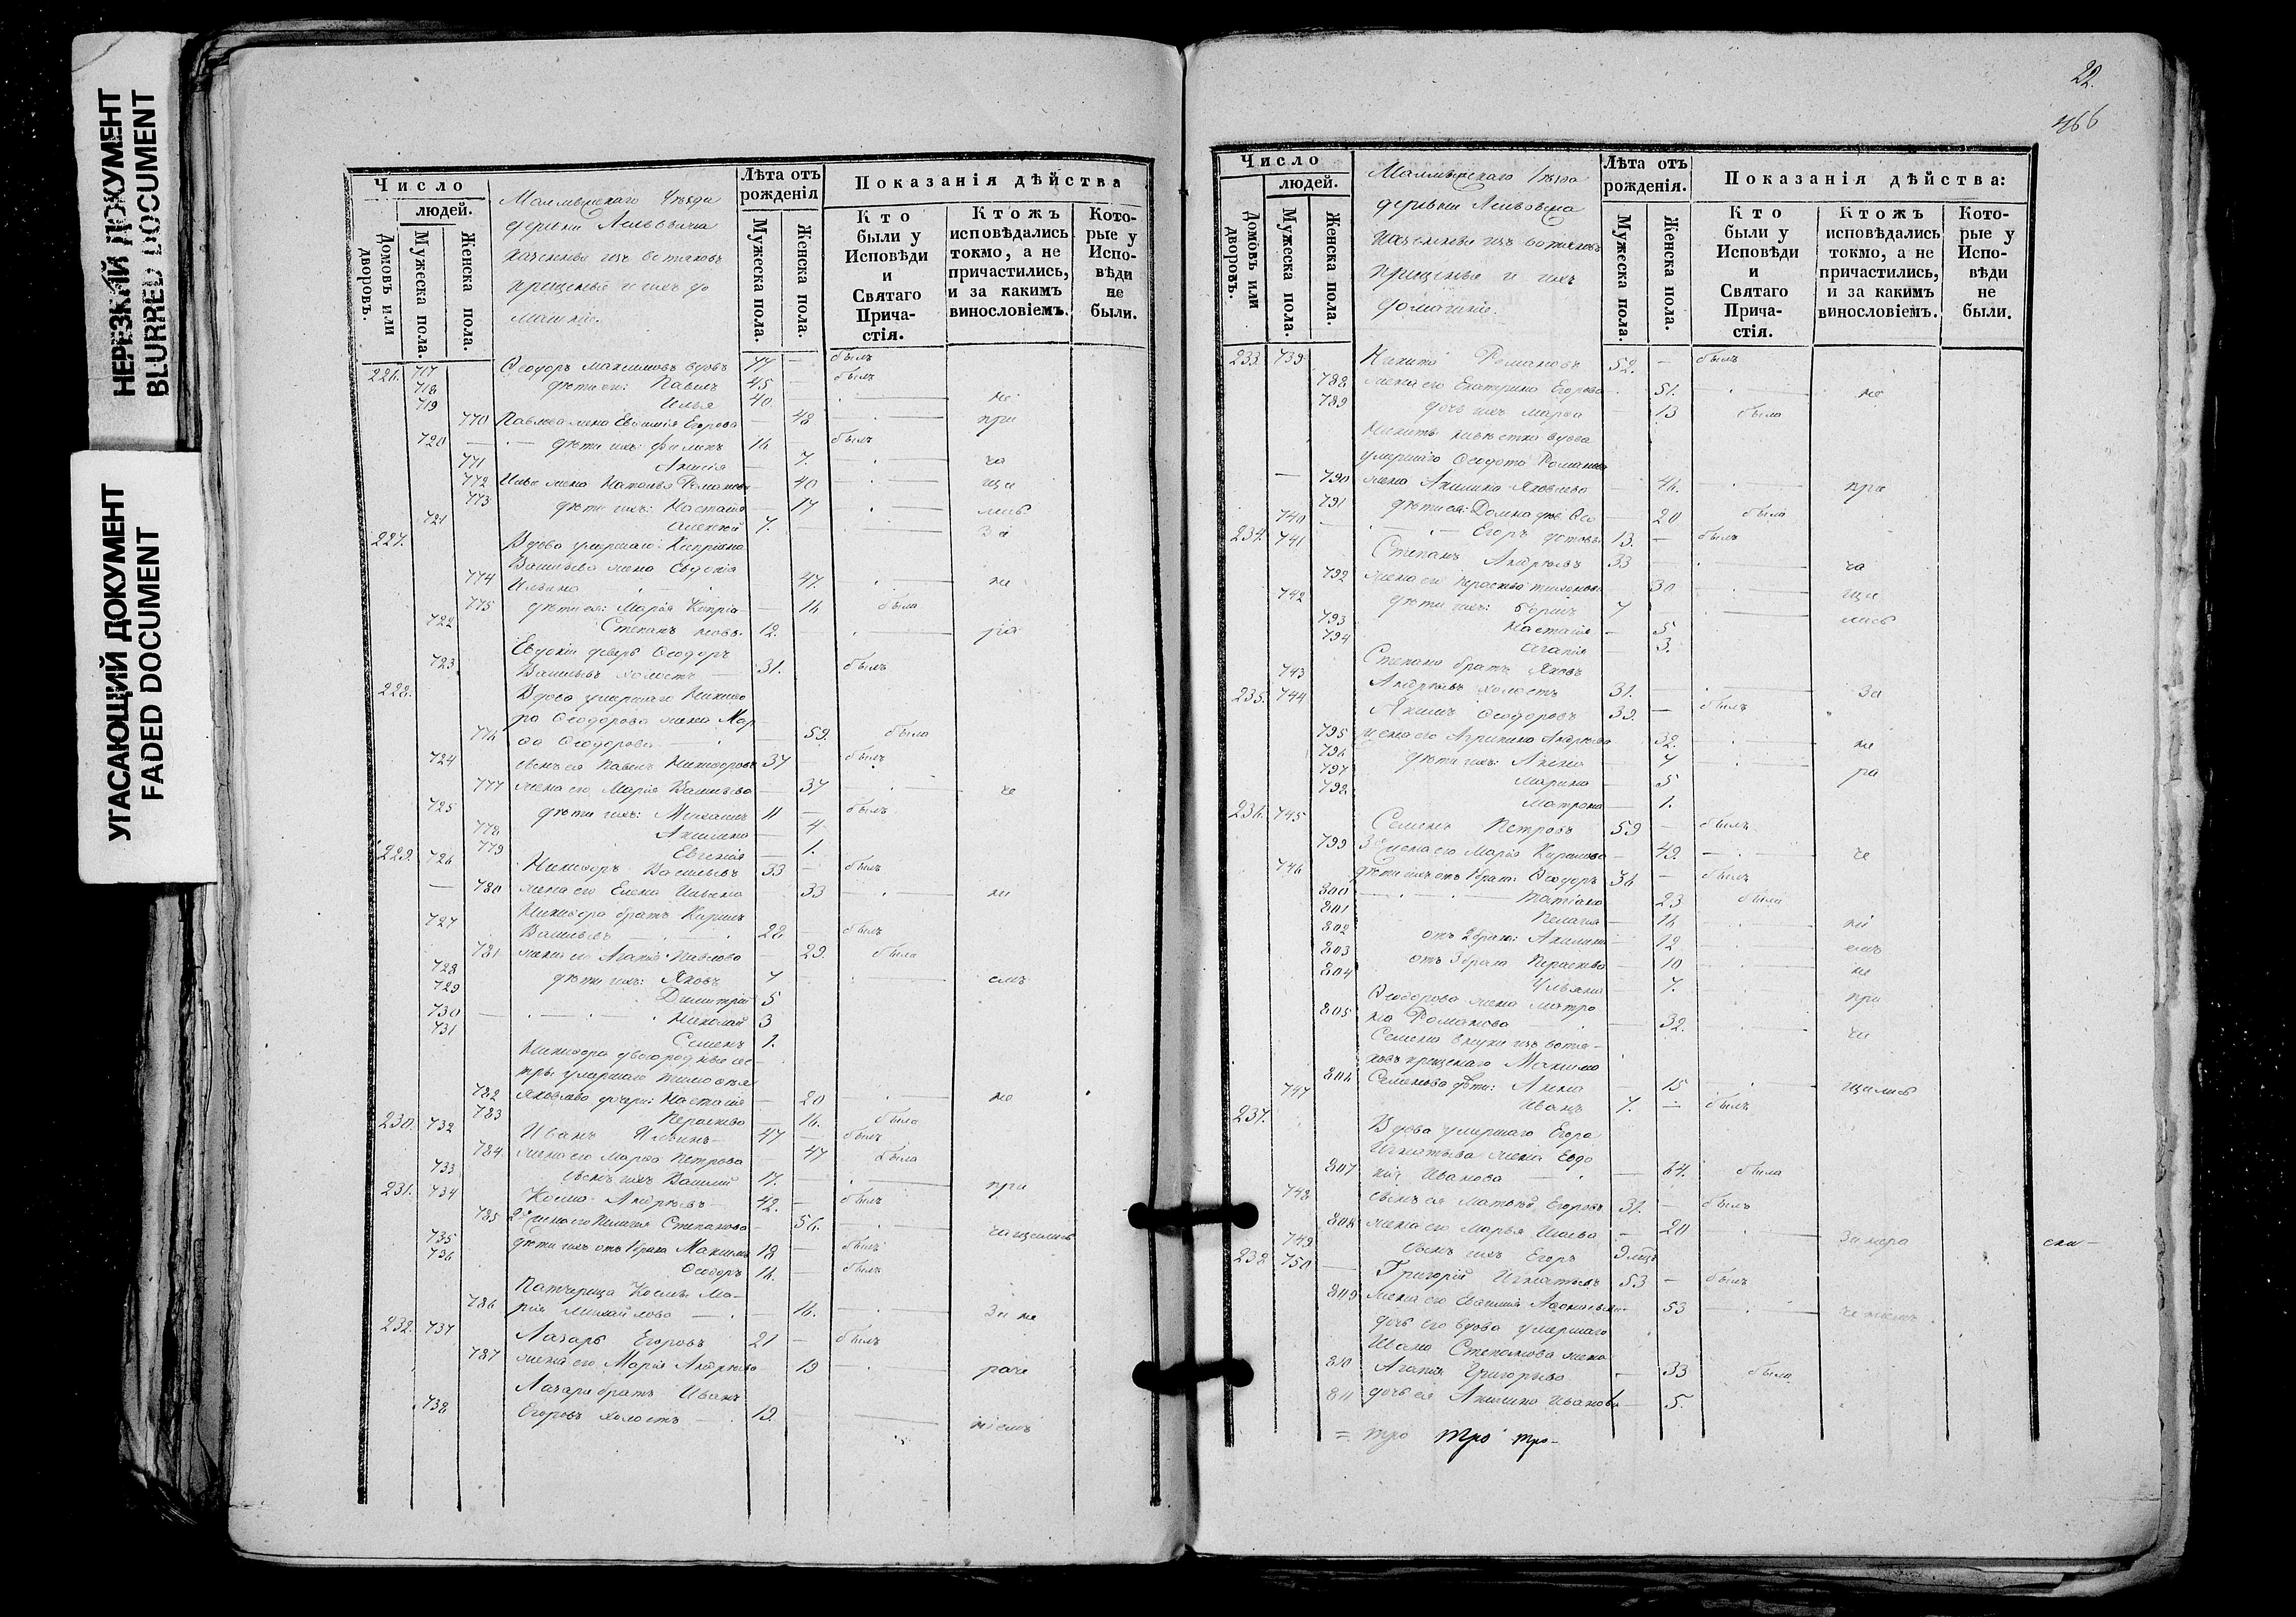 НЕРЕЗКИЙ ДОКУМЕНТ
BLURRED DOCUMENT
УГАСАЮЩИЙ ДОКУМЕНТ
FADED DOCUMENT
Число
людей.
Домовъ или дворовъ.
Мужеска пола.
Женска пола.
Малмыжскаго Уѣзда
деревни
изъ вотяковъ
крещеные и ихъ до
машніе.
Лѣта отъ рожденія
Мужеска пола.
Женска пола.
Показанія дѣйства
Кто были у Исповѣди и Святаго Прича-стія.
Ктожъ исповѣдались токмо, а не причастились, и за какимъ винословіемъ.
Кото-рые у Испо-вѣди не были.
226. 717 Ѳеодоръ Максимовъ вдовъ 77 — былъ
718 дѣти его: Павелъ 45 — былъ
719 Илья 40 — не
770 Павлова жена Евфимія Егорова — 48 при
720 дѣти ихъ: Филипъ 16 былъ
771 Анисія — 7. ча
772 Ильи жена Наталья Романова — 40 ще
773 дѣти ихъ: Настасія — 17 лись
721 Алексей 7. — За
227. Вдова умершаго Кипріяна
Васильева жена Евдокія
774 Ильина 47. не
775 дѣти ея: Марія Кипріа- — 16 была
722 Степанъ 12. ра
Евдокіи деверь Ѳеодоръ
723 Васильевъ холостъ 31. былъ
228. Вдова умершаго Никифо
ра Ѳеодорова жена Мар
776 ѳа Ѳеодорова — 59. была
724 сынъ ея Павелъ Никифоровъ 37 — былъ
777 жена его Марія Васильева — 37 че
725 дѣти ихъ: Михаилъ 11 — былъ
778 Акилина — 4
779 Евгенія — 1.
229. 726 Никифоръ Васильевъ 33 — былъ
780 жена его Елена Ильина 33 ні
Никифора братъ Кирилъ
727 Васильевъ 28. былъ
781 жена его Агапія Павлова — 29. была
728 дѣти ихъ: Яковъ 7 емъ
729 Димитрій 5
730 Николай 3
731 Семенъ 1.
Никифора двоюродные сес-
тры умершаго Тимоѳея
782 Яковлева дочери: Настасія — 20 не
783 Парасковья — 16. была
230. 732 Иванъ Ильинъ 47 — былъ
784. жена его Марѳа Петрова 47 была
733 сынъ ихъ Василій 17. при
231. 734 Косма Андреевъ 42. — былъ
785 2я жена его Пелагея Степанова — 56. чащались
735 дѣти ихъ отъ 1 брака Максимъ 18 — былъ
736 Ѳеодоръ 16. — былъ
Падчерица Космы Ма-
786 рія Михайлова 16. За не
232. 737 Лазарь Егоровъ 21 — былъ
787 жена его Марія Андреева 19 раче
Лазаря братъ Иванъ
738 Егоровъ холостъ 19. ніемъ
22.
466
Число
людей.
Домовъ или дворовъ.
Мужеска пола.
Женска пола.
Малмыжскаго Уѣзда
деревни
изъ вотяковъ
крещеные и ихъ
домашніе.
Лѣта отъ рожденія.
Мужеска пола.
Женска пола.
Показанія дѣйства:
Кто были у Исповѣди и Святаго Прича-стія.
Ктожъ исповѣдались токмо, а не причастились, и за какимъ винословіемъ.
Кото-рые у Испо-вѣди не были.
233. 739 Никита Романовъ 52. — былъ
788 жена его Екатерина Егорова 51. не
789 дочь ихъ Марѳа — 13 была
Никиты невѣстка вдова
умершаго Ѳеодота Романова
790 жена Акилина Яковлева — 46. при
791 дѣти ея: Домна дѣв. Ѳео — 20 была
740 Егоръ дотовъ 13. — былъ
234. 741 Степанъ Андреевъ 33 ча
792 жена его Парасковья 30 ще
742 дѣти ихъ: 7 лись
793 Настасія — 5
794 Агапія — 3.
Степана братъ Яковъ
743 Андреевъ холостъ 31. За
235. 744 Якимъ Ѳеодоровъ 39. — былъ
795 жена его Агрипина Андреева 32. не
796 дѣти ихъ: Анна — 7 ра
797 Марина — 5
798 Матрона — 1.
236. 745 Семенъ Петровъ 59 — былъ
799 3я жена его Марія Кирилова — 49. че
746 дѣти ихъ отъ 1 брака: Ѳеодоръ 36 — былъ
800 Татіана 23 была
801 Пелагея — 16 ні
802 отъ 2 брака: Акилина — 12 емъ
803 отъ 3 брака Парасковья — 10 не
804 Ульяна — 7. при
Ѳеодорова жена Матро
805 на Романова — 32. ча
Семена внуки изъ вотя-
ковъ крещенаго Максима
806 Семенова дѣти: Анна — 15 щались
747 Иванъ 7. — былъ
237. Вдова умершаго Егора
Игнатьева жена Евдо
807 кія Иванова — 64. была
748 сынъ ея Матвѣй Егоровъ 31. — былъ
808 жена его Марья — 20 За нера
749 сынъ ихъ Егоръ
238 750 Григорій Игнатьевъ 53 — былъ
809 жена его Евфимія 53 ченіемъ
дочь его вдова умершаго
Ивана Степанова жена
810 Агапія Григорьева — 33 была
811 дочь ея Акилина Иванова — 5.
= тро тро тро-